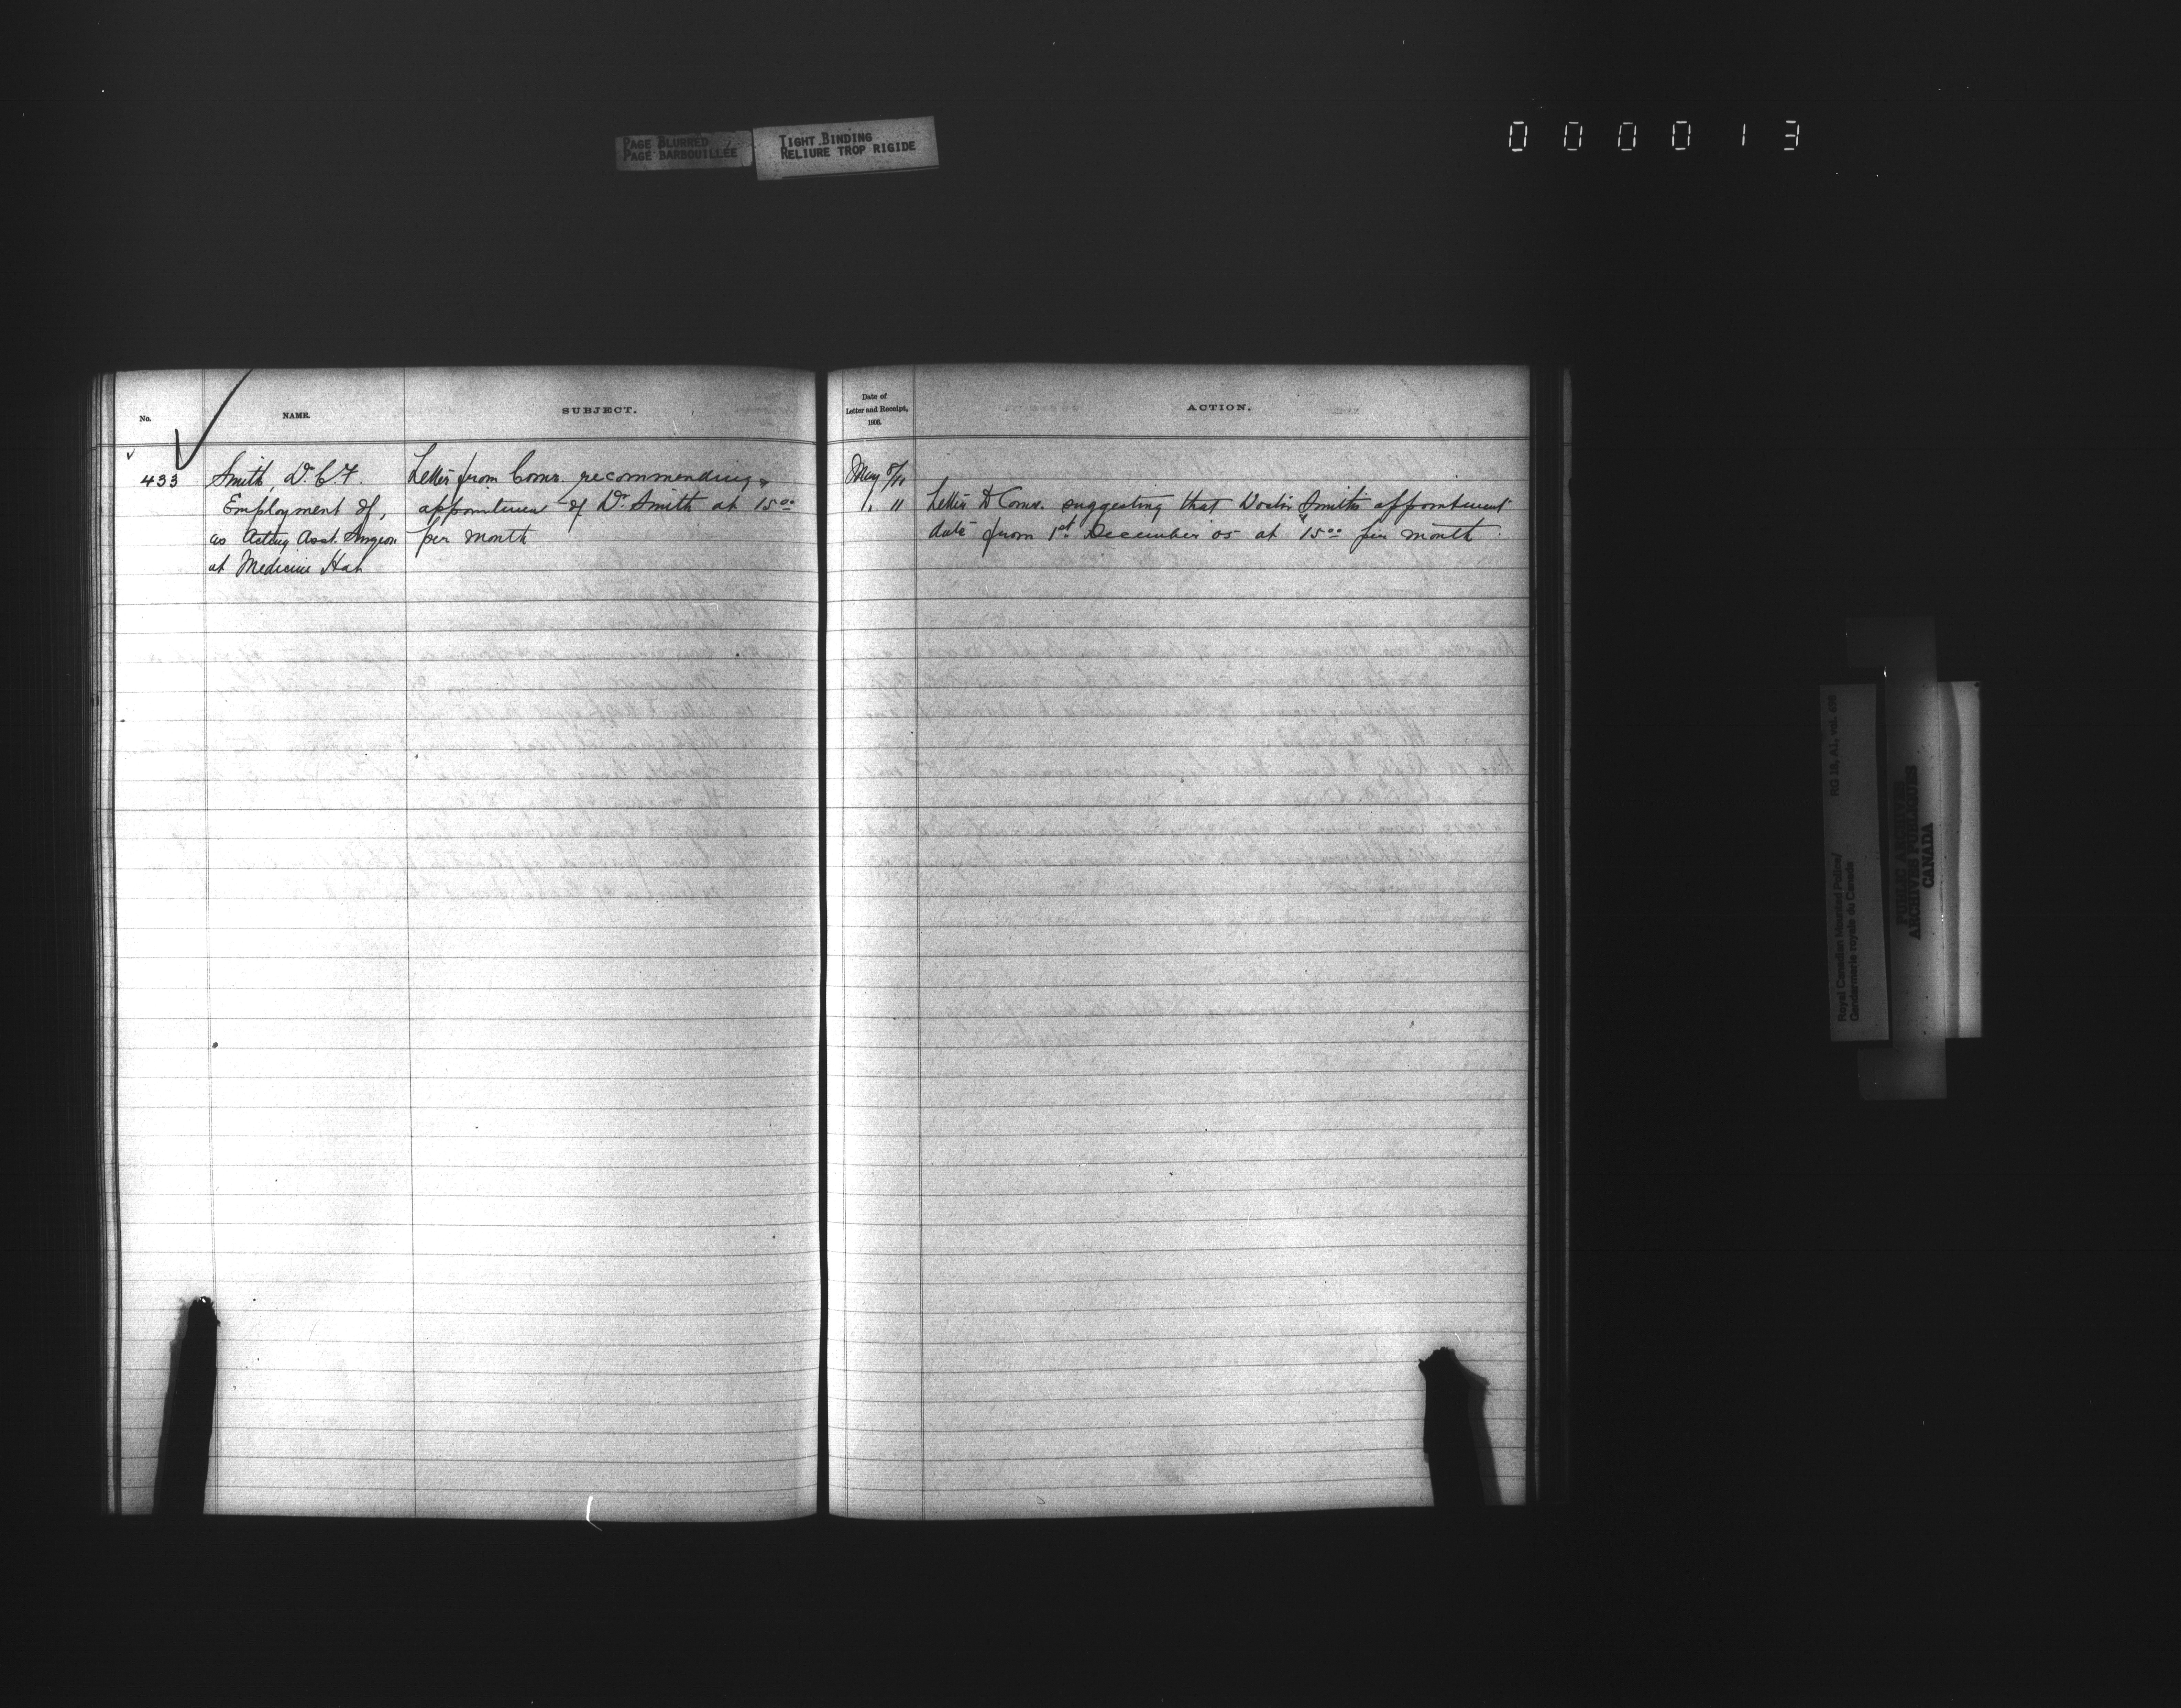 PAGE BLURRED
PAGE BARBOUILLÉE
TIGHT BINDING
RELIURE TROP RIGIDE
000013
No.
NAME.
SUBJECT.
Date of
Letter and Receipt,
1906.
ACTION.
433
Smith, Dr. C. F.
Employment of,
as Acting Asst. Surgeon
at Medicine Hat
Letter from Comr. recommending
appointment of Dr. Smith at 15.00
per month
May 8/11
" 11
Letter to Comr. suggesting that Doctor Smith's appointment
date from 1st December 05 at 15.00 per month.
RG 18, A1, vol.
Royal Canadian Mounted Police/
Gendarmerie royale du Canada
PUBLIC ARCHIVES
ARCHIVES PUBLIQUES
CANADA